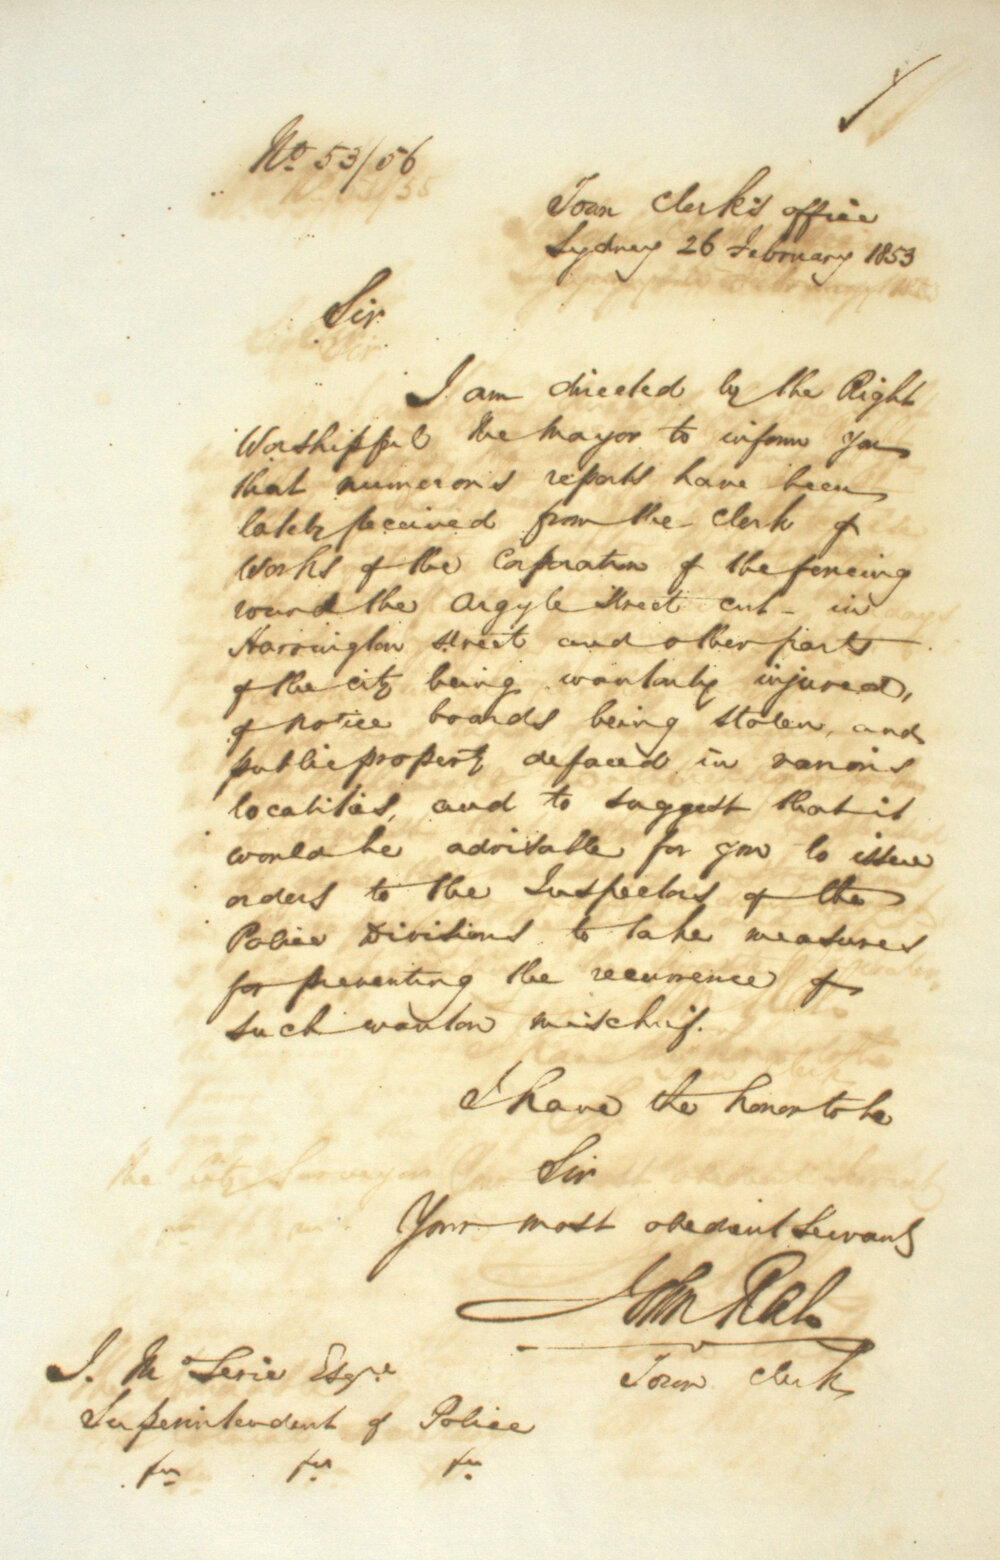 No. 53/56
Town Clerk's office
Sydney 26 February 1853
Sir
I am directed by the Right
Worshipful the Mayor to inform you
that numerous reports have been
lately received from the Clerk of
Works of the Corporation of the fencing
round the Argyle Street cut - in
Harrington Street and other parts
of the city being wantonly injured,
of notice boards being stolen, and
public property defaced in various
localities, and to suggest that it
would be advisable for you to issue
orders to the Inspectors of the
Police Divisions to take measures
for preventing the recurrence of
such wanton mischief.
I have the honor to be
Sir
Your most obedient Servant
John Rae
Town Clerk
J. McLerie Esqre
Superintendent of Police